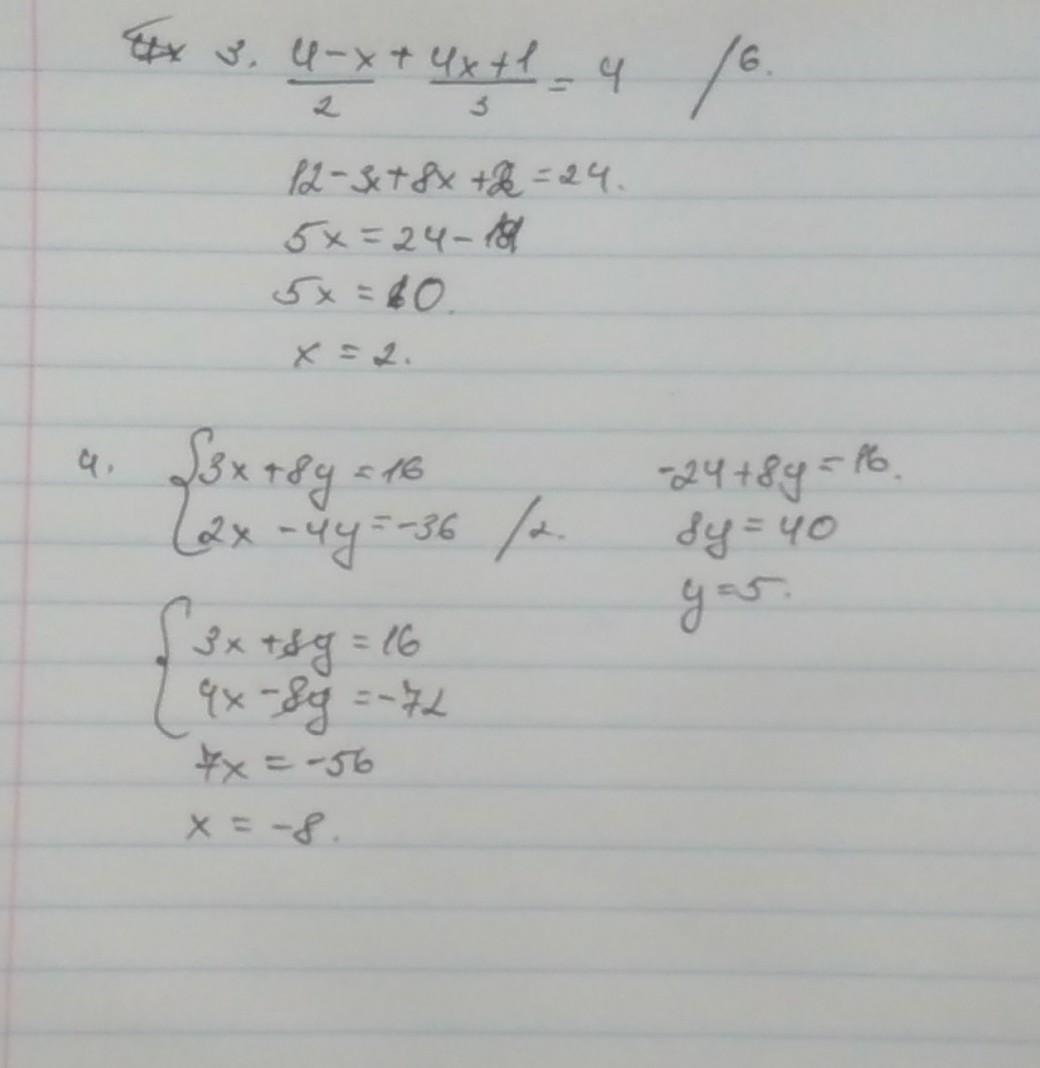 3. (4-x)/2 + (4x+1)/3 = 4 /6.
12-3x+8x+2=24.
5x=24-14
5x=10.
x=2.
4. {3x+8y=16
{2x-4y=-36 /2.
{3x+8y=16
{4x-8y=-72
7x=-56
x=-8.
-24+8y=16.
8y=40
y=5.